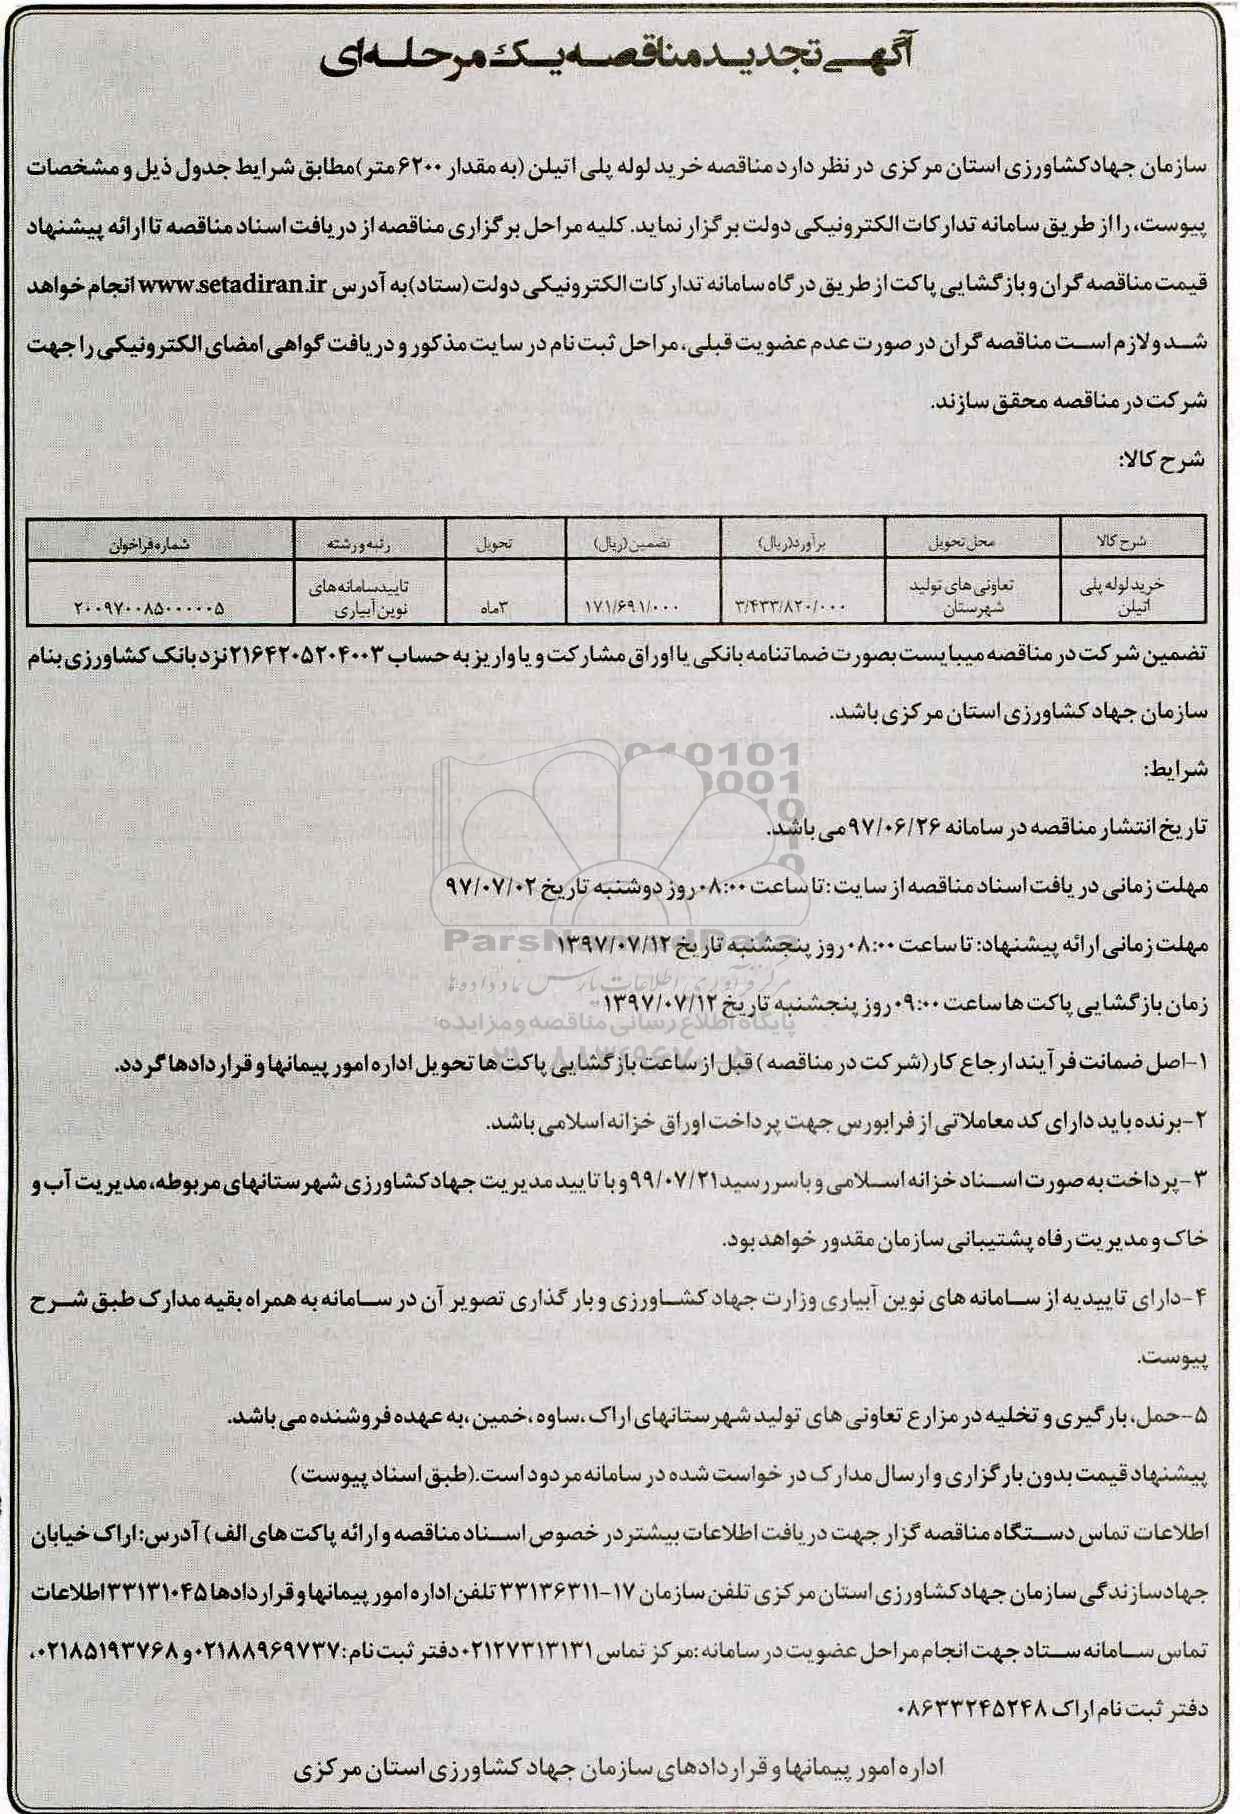 آگهی تجدید مناقصه یک مرحله‌ای
سازمان جهاد کشاورزی استان مرکزی در نظر دارد مناقصه خرید لوله پلی اتیلن (به مقدار ۶۲۰۰ متر) مطابق شرایط جدول ذیل و مشخصات
پیوست، را از طریق سامانه تدارکات الکترونیکی دولت برگزار نماید. کلیه مراحل برگزاری مناقصه از دریافت اسناد مناقصه تا ارائه پیشنهاد
قیمت مناقصه گران و بازگشایی پاکت از طریق درگاه سامانه تدارکات الکترونیکی دولت (ستاد) به آدرس www.setadiran.ir انجام خواهد
شد و لازم است مناقصه گران در صورت عدم عضویت قبلی، مراحل ثبت نام در سایت مذکور و دریافت گواهی امضای الکترونیکی را جهت
شرکت در مناقصه محقق سازند.
شرح کالا:
شرح کالا	محل تحویل	برآورد(ریال)	تضمین (ریال)	تحویل	رتبه ورشته	شماره فراخوان
خرید لوله پلی اتیلن	تعاونی های تولید شهرستان	۳/۴۳۳/۸۲۰/۰۰۰	۱۷۱/۶۹۱/۰۰۰	۳ماه	تایید سامانه های نوین آبیاری	۲۰۰۹۷۰۰۸۵۰۰۰۰۰۵
تضمین شرکت در مناقصه میبایست بصورت ضمانتنامه بانکی یا اوراق مشارکت و یا واریز به حساب ۲۱۶۴۲۰۵۲۰۴۰۰۳ نزد بانک کشاورزی بنام
سازمان جهاد کشاورزی استان مرکزی باشد.
شرایط:
تاریخ انتشار مناقصه در سامانه ۹۷/۰۶/۲۶ می باشد.
مهلت زمانی دریافت اسناد مناقصه از سایت: تا ساعت ۰۸:۰۰ روز دوشنبه تاریخ ۹۷/۰۷/۰۲
مهلت زمانی ارائه پیشنهاد: تا ساعت ۰۸:۰۰ روز پنجشنبه تاریخ ۱۳۹۷/۰۷/۱۲
ParsNamadData
مرکز فرآوری اطلاعات پارس نماد داده ها
زمان بازگشایی پاکت ها ساعت ۰۹:۰۰ روز پنجشنبه تاریخ ۱۳۹۷/۰۷/۱۲
پایگاه اطلاع رسانی مناقصه و مزایده
۱-اصل ضمانت فرآیند ارجاع کار(شرکت در مناقصه) قبل از ساعت بازگشایی پاکت ها تحویل اداره امور پیمانها و قراردادها گردد.
۲-برنده باید دارای کد معاملاتی از فرابورس جهت پرداخت اوراق خزانه اسلامی باشد.
۳-پرداخت به صورت اسناد خزانه اسلامی و با سررسید ۹۹/۰۷/۲۱ و با تایید مدیریت جهاد کشاورزی شهرستانهای مربوطه، مدیریت آب و
خاک و مدیریت رفاه پشتیبانی سازمان مقدور خواهد بود.
۴-دارای تاییدیه از سامانه های نوین آبیاری وزارت جهاد کشاورزی و بار گذاری تصویر آن در سامانه به همراه بقیه مدارک طبق شرح
پیوست.
۵-حمل، بارگیری و تخلیه در مزارع تعاونی های تولید شهرستانهای اراک، ساوه، خمین، به عهده فروشنده می باشد.
پیشنهاد قیمت بدون بارگزاری و ارسال مدارک درخواست شده در سامانه مردود است.(طبق اسناد پیوست)
اطلاعات تماس دستگاه مناقصه گزار جهت دریافت اطلاعات بیشتر در خصوص اسناد مناقصه و ارائه پاکت های الف) آدرس: اراک خیابان
جهادسازندگی سازمان جهاد کشاورزی استان مرکزی تلفن سازمان ۱۷-۳۳۱۳۶۳۱۱ تلفن اداره امور پیمانها و قراردادها ۳۳۱۳۱۰۴۵ اطلاعات
تماس سامانه ستاد جهت انجام مراحل عضویت در سامانه: مرکز تماس ۰۲۱۲۷۳۱۳۱۳۱ دفتر ثبت نام: ۰۲۱۸۸۹۶۹۷۳۷ و ۰۲۱۸۵۱۹۳۷۶۸،
دفتر ثبت نام اراک ۰۸۶۳۳۲۴۵۲۴۸
اداره امور پیمانها و قراردادهای سازمان جهاد کشاورزی استان مرکزی